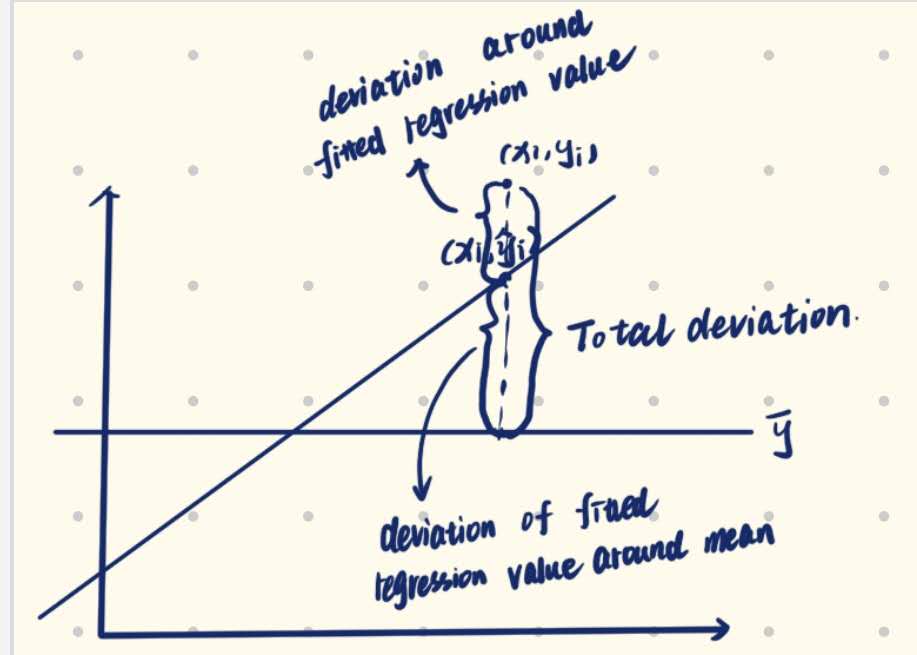 deviation around
fitted regression value
(xi, yi)
(xi, ŷi)
Total deviation.
ȳ
deviation of fitted
regression value around mean